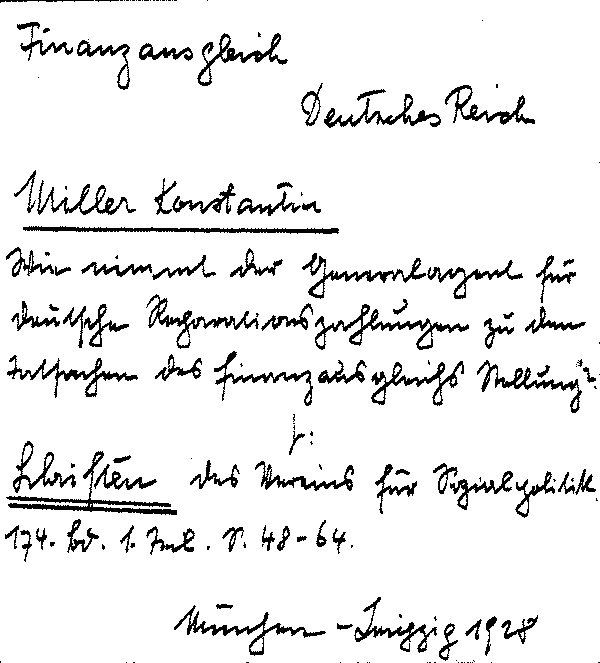 Finanzausgleich
Deutsches Reich
Miller Konstantin
Wie nimmt der Generalagent für
deutsche Reparationszahlungen zu den
Tatsachen des Finanzausgleichs Stellung?
Schriften des Vereins für Sozialpolitik
174. Bd. 1. Teil. S. 48-64.
München - Leipzig 1928